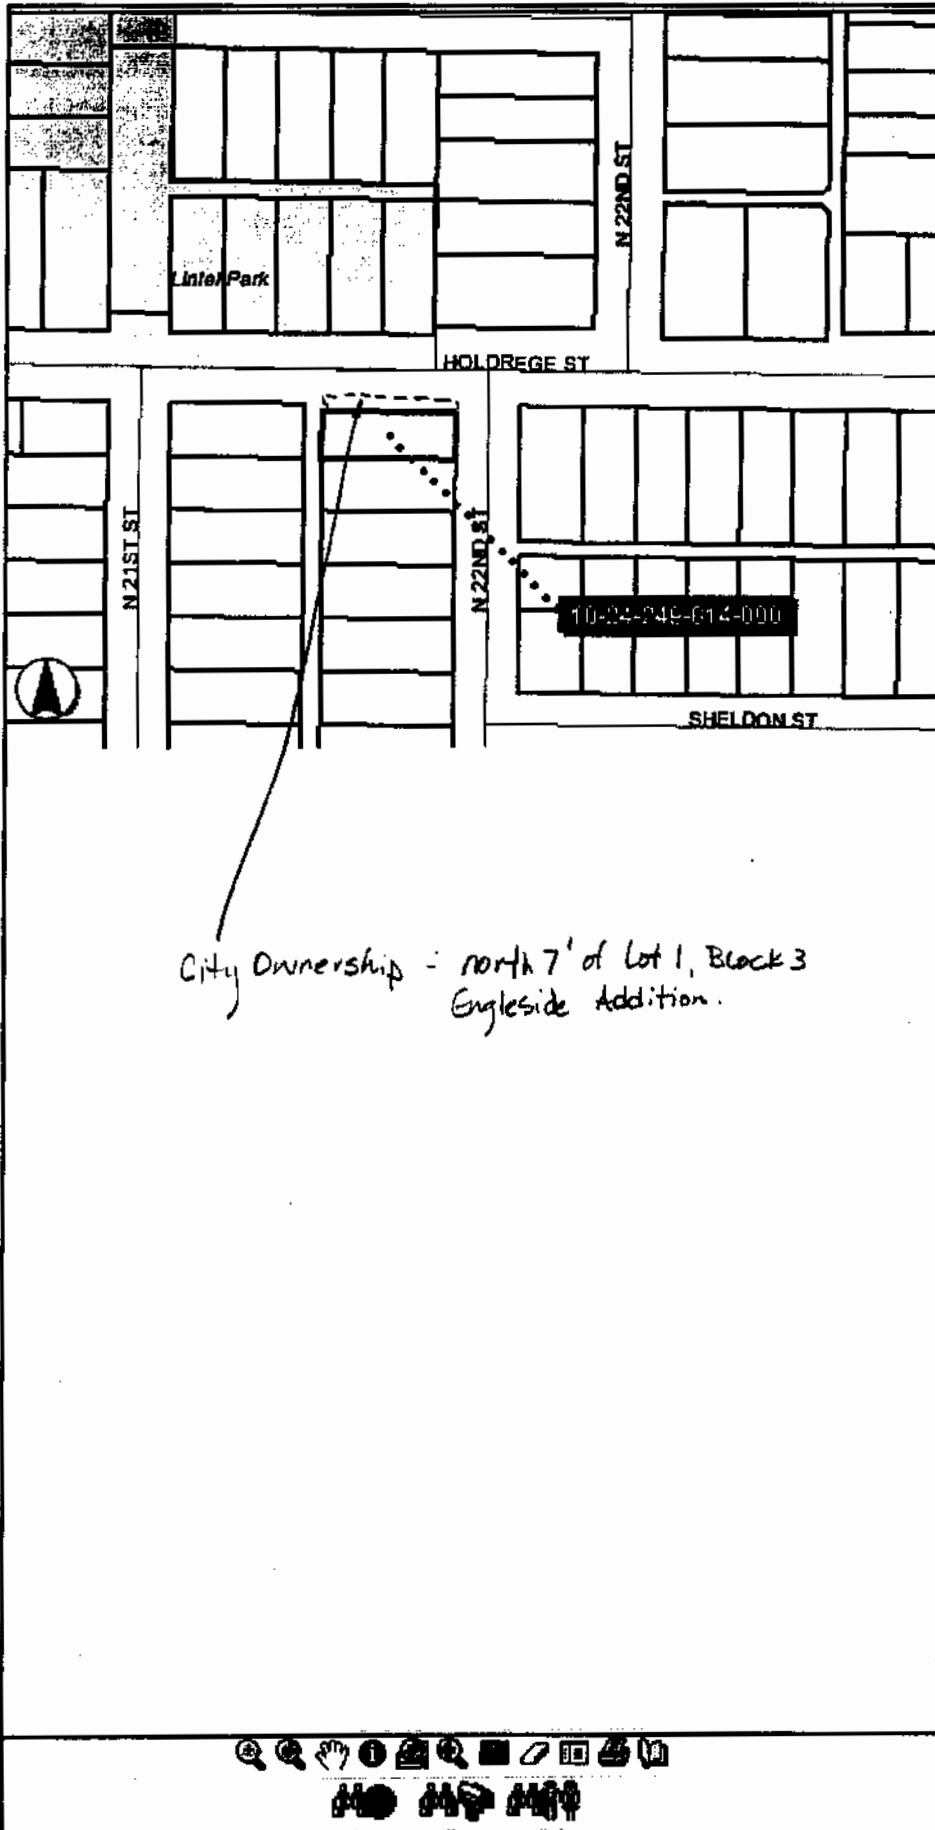 N 22ND ST
Lintel Park
HOLDREGE ST
N 21ST ST
N 22ND ST
10-24-249-614-000
SHELDON ST
City Ownership - north 7' of Lot 1, Block 3
Engleside Addition.